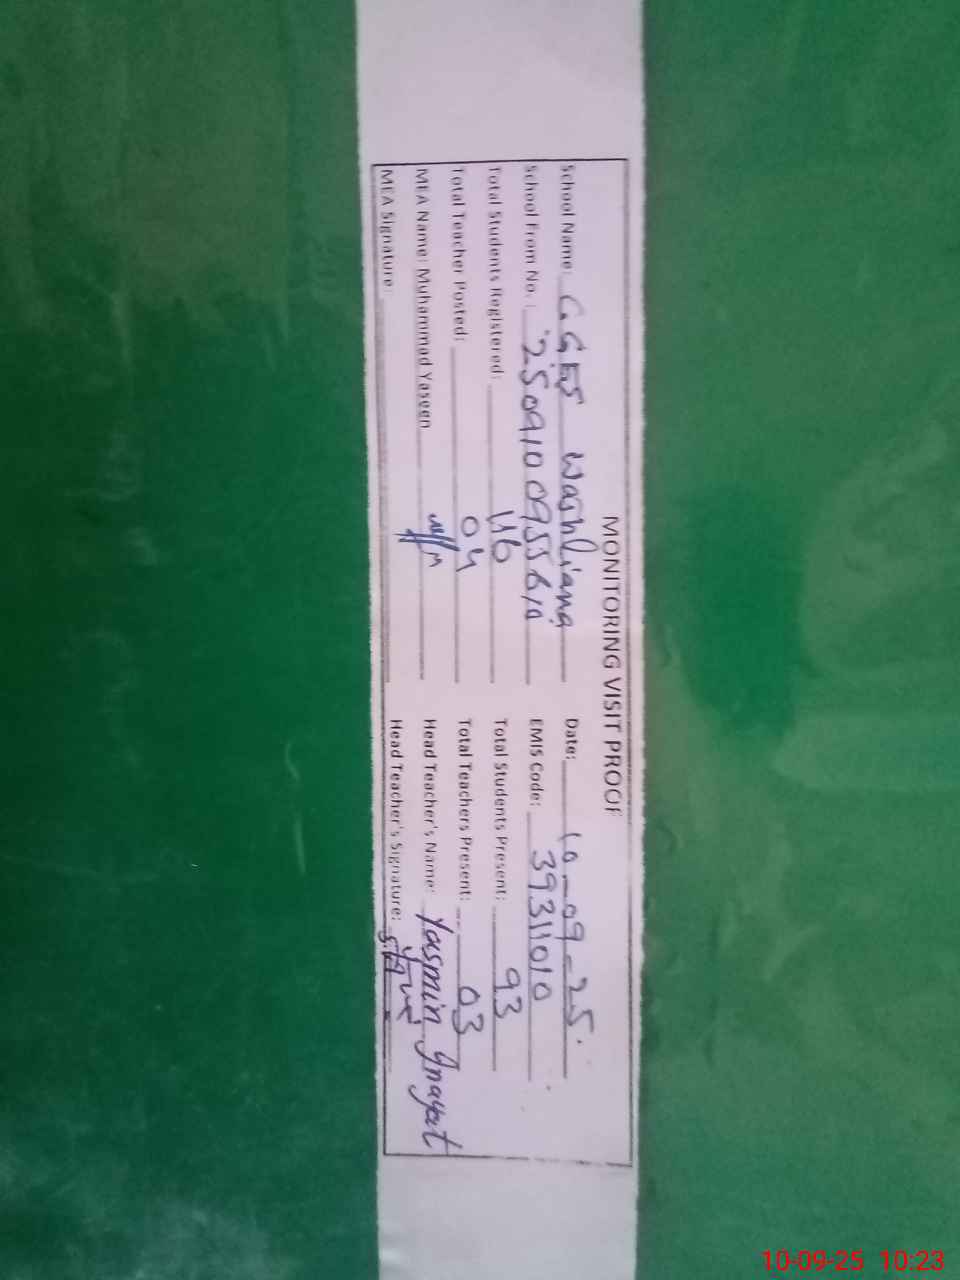 MONITORING VISIT PROOF
School Name: GGES Washliana Date: 10-09-25.
School From No. : EMIS Code: 39311010
Total Students Registered: 116 Total Students Present: 93
Total Teacher Posted: 04 Total Teachers Present: 03
MEA Name: Muhammad Yaseen Head Teacher's Name: Yasmin Ynayat
MEA Signature: Head Teacher's Signature:
10-09-25 10:23